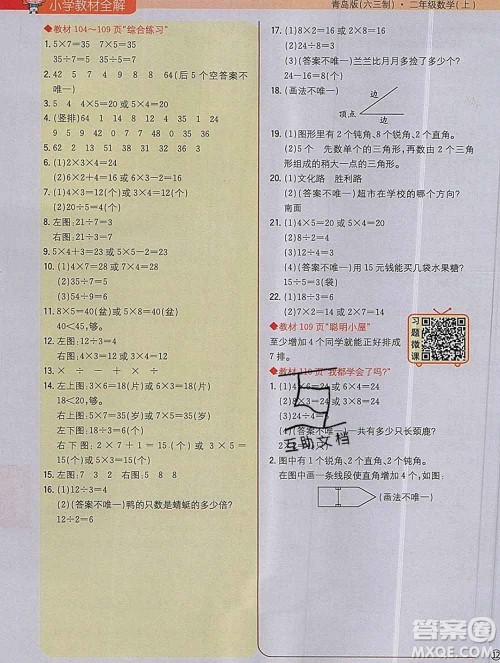 小学教材全解
青岛版(六三制)·二年级数学(上)
教材 104～109 页“综合练习”
1. 5×7=35 7×5=35
35÷7=5 35÷5=7
2. 42 5 7 4 2 8 2(后 5 个空答案不
唯一)
3. 5 4 4×5=20 或 5×4=20
4. (竖排)64 1 4 12 4 4 35 1 24
9 5 9 42 0 7 9 40 7
5. 62 13 18 31 34 64
6. (1)2×3×4=24
(2)6÷2=16 或 2×6=16
7. (1)4×3=12(个)或 3×4=12(个)
(2)20÷5=4(个)
8. 左图:21÷7=3
右图:21÷3=7
9. (1)4×5=20 或 5×4=20
(2)5×6=30 或 6×5=30
10. (1)3×4=12 或 4×3=12
(2)12÷3=4
11. 8×5=40(盆)或 5×8=40(盆)
40<45,够。
13. × ÷ - × + ÷
14. 左上图:3×6=18(片)或 6×3=18(片)
右上图:2×7=14(片)或 7×2=14(片)
左下图:18÷3=6
右下图:2×7+1=15(片)或
2×8-1=15(片)
15. 7 7 6 6 5 8 8
16. (1)12÷3=4
(2)(答案不唯一)鸭的只数是蜻蜓的多少倍?
12÷2=6
17. (1)8×2=16 或 2×8=16
(2)(答案不唯一)兰兰比月月多捡了多少个?
24-16=8(个)
18. (画法不唯一)
边
顶点
边
19. (1)图形里有 2 个钝角、8 个锐角、2 个直角。
(2)5个 先数单个的三角形,再数由 2 个三角
形组成的稍大一点的三角形。
20. (1)文化路 胜利路
(2)(答案不唯一)超市在学校的哪个方向?
南面
21. (1)27÷3=9
(2)30÷5=6
(3)(答案不唯一)用 15 元钱能买几袋水果糖?
15÷5=3(袋)
22. (1)3×6=18 或 6×3=18
(2)7×2=14 或 2×7=14
教材 109 页“聪明小屋”
至少增加 4 个同学就能正好排成
7 排。
习题微课
教材 110 页“我都学会了吗?”
1. (1)24÷3=8
(2)8×3=24 或 3×8=24
(3)24÷4=6
(4)(答案不唯一)一共有多少只长颈鹿?
互助文档
2. 图中有 1 个锐角、2 个直角、2 个钝角。
在图中画一条线段使直角增加 4 个。
(画法不唯一)
答案圈
MXQE.COM
12